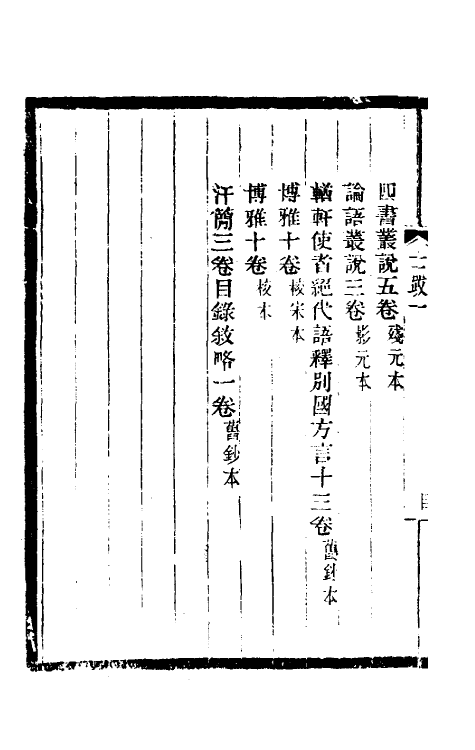 四書叢說五卷殘元本
論語叢說三卷影元本
輶軒使者絕代語釋別國方言十三卷舊鈔本
博雅十卷校宋本
博雅十卷校本
汗簡三卷目錄敘略一卷舊鈔本